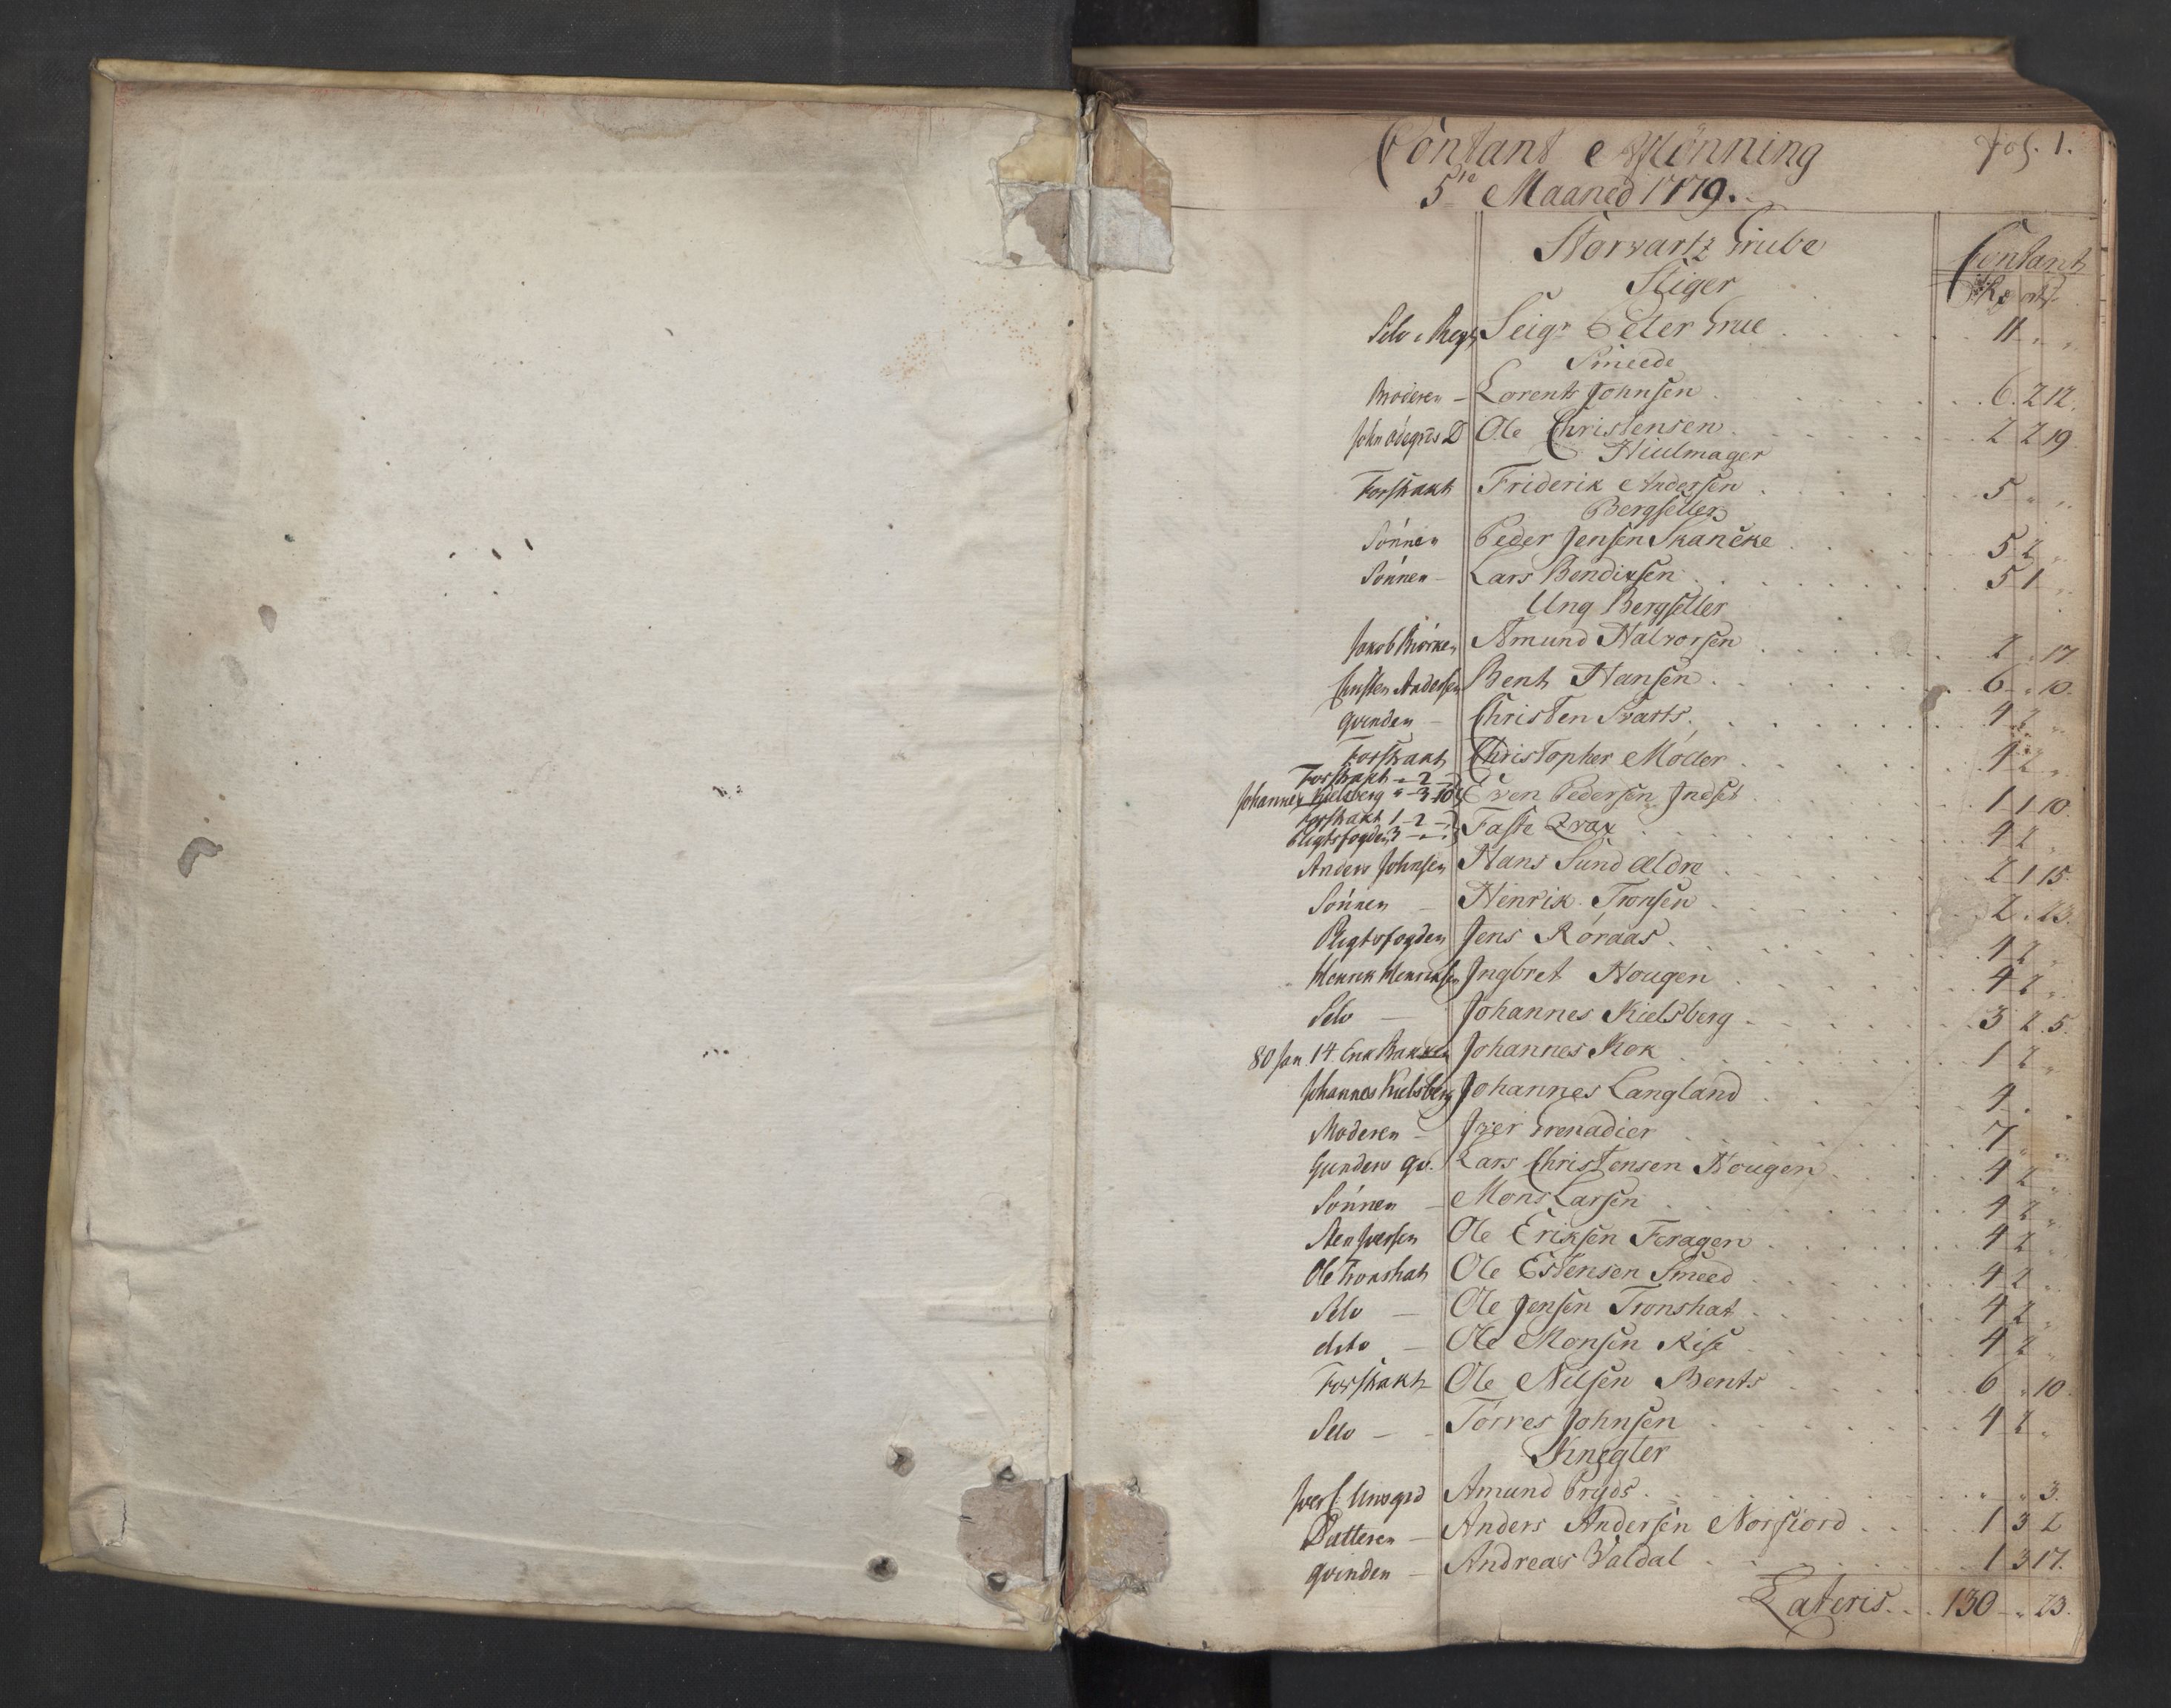 Contant Mönning
Fol. 1.
5te Maaned 1779.
Storvartz Grube
Contant
Stiger
Rd ort s
Selv Seigr Peter Grue 11 " "
Smeede
Broderen - Lorents Johnsen 6. 2 12.
Ole Christensen 2 2 19
Hiulmager
Forstrakt Friderik Andersen 5 " "
Bergseller
Sönnen Peder Jensen Skancke 5 2 "
Sönnen - Lars Bendixsen 5 1 "
Ung Bergseller
Jakob Biörken Amund Halvorsen 2 " 17
Christen Andersen Bent Hansen 6 " 10.
Qvinden - Christen Svarts 4 2 "
Forstrakt Christopher Möller 4 2 "
Forstrakt - " 2 -
Johannes Kielsberg " - 3 - 10 Even Pedersen Indset 1 1 10
Forstrakt 1 - 2 -
Pligtsfogden 3 - " - Faste Qvax 4 2 "
Anders Johnsen Hans Sund ældre 2 1 15
Sönnen - Henrik Tronsen 2 " 23.
Pligtsfogden Jens Röraas 4 2 "
Henrik Henriksen Ingbret Hougen 4 2 "
Selv - Johannes Kielsberg 3 2 5.
80 Jan 14. Erik Bakken Johannes Kok 1 2 "
Johannes Kielsberg Johannes Langland 4 " "
Moderen - Iver Grenadier 7 " "
Gunders qv. Lars Christensen Hougen 4 2 "
Sönnen - Mons Larsen 4 2 "
Sten Iversen Ole Eriksen Feragen 4 2 "
Ole Tronshat Ole Estensen Smeed 4 2 "
Selv - Ole Jensen Tronshat 4 2 "
dito - Ole Monsen Rise 4 2 "
Forstrakt Ole Nilsen Bents 6 " 10
Selv - Törres Johnsen 4 2 "
Knegter
Amund Pryds " " 3.
Datteren - Anders Andersen Norfiord 1 3 2
Qvinden - Andreas Valdal 1 3 17.
Lateris 130 " 23.